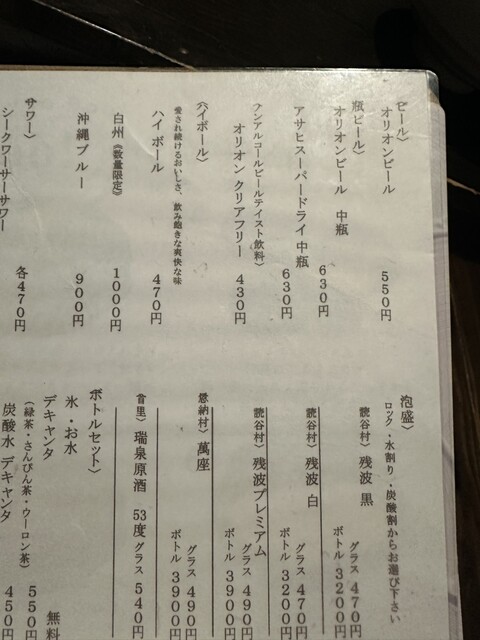 ビール〉
オリオンビール 550円
瓶ビール〉
オリオンビール 中瓶 630円
アサヒスーパードライ 中瓶 630円
ノンアルコールビールテイスト飲料〉
オリオン クリアフリー 430円
ハイボール〉
愛され続けるおいしさ、飲み飽きな爽快な味
ハイボール 470円
白州《数量限定》 1000円
沖縄ブルー 900円
サワー〉
シークワーサーサワー 各470円
泡盛〉
ロック・水割り・炭酸割からお選び下さい
読谷村〉残波 黒 グラス 470円
ボトル 3200円
読谷村〉残波 白 グラス 470円
ボトル 3200円
読谷村〉残波プレミアム グラス 490円
ボトル 3900円
恩納村〉萬座 グラス 490円
ボトル 3900円
首里〉瑞泉原酒 53度 グラス 540円
ボトルセット〉
氷・お水 無料
デキャンタ 550円
（緑茶・さんぴん茶・ウーロン茶）
炭酸水 デキャンタ 450円